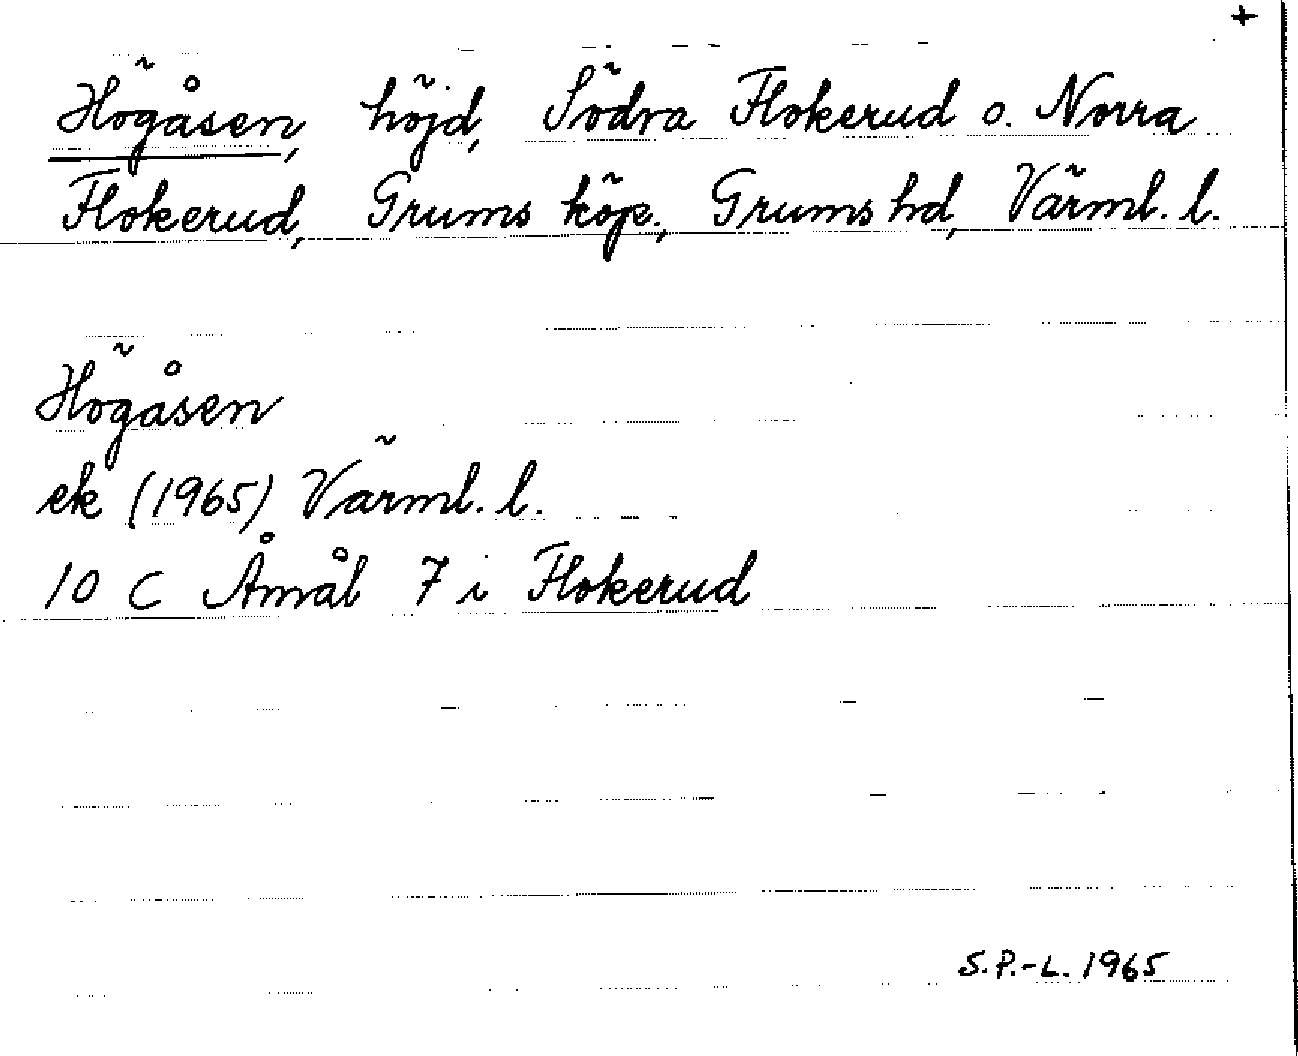 +
Högåsen, höjd, Södra Flokerud o. Norra
Flokerud, Grums köp., Grums hd, Värml. l.
Högåsen
ek (1965) Värml. l.
10 C Åmål 7 i Flokerud
S.P.-L. 1965